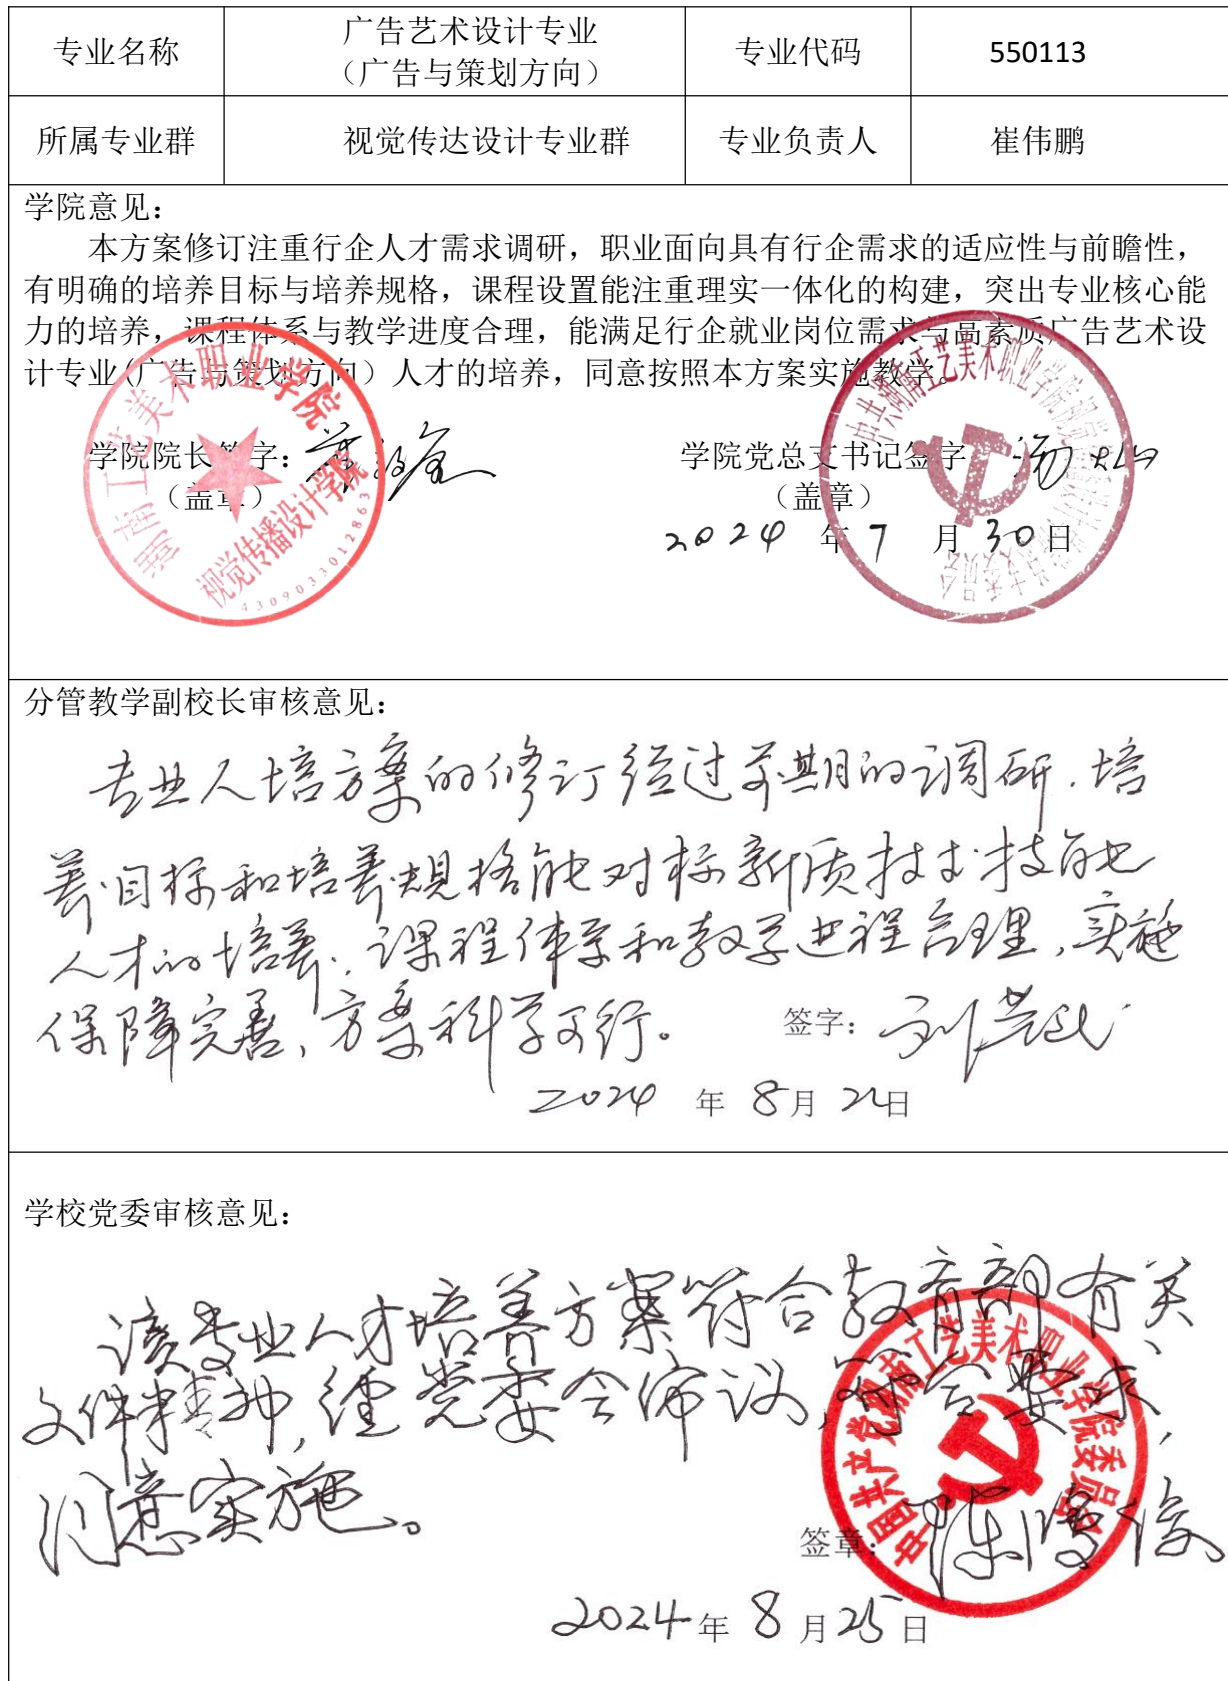 专业名称 广告艺术设计专业 专业代码 550113
（广告与策划方向）
所属专业群 视觉传达设计专业群 专业负责人 崔伟鹏
学院意见：
本方案修订注重行企人才需求调研，职业面向具有行企需求的适应性与前瞻性，
有明确的培养目标与培养规格，课程设置能注重理实一体化的构建，突出专业核心能
力的培养，课程体系与教学进度合理，能满足行企就业岗位需求与高素质广告艺术设
计专业（广告与策划方向）人才的培养，同意按照本方案实施教学。
学院院长签字： 学院党总支书记签字
（盖章） （盖章）
2024 年 7 月 30 日
湖南工艺美术职业学院
视觉传播设计学院
4309033012863
分管教学副校长审核意见：
专业人培方案的修订经过前期的调研，培
养目标和培养规格能对标新质技术技能
人才的培养，课程体系和教学进程合理，实施
保障完善，方案科学可行。 签字：
2024 年 8月 日
学校党委审核意见：
该专业人才培养方案符合教育部有关
文件精神，经党委会审议，符合要求，
同意实施。
签章：
中国共产党湖南工艺美术职业学院委员会
2024 年 8 月 25 日